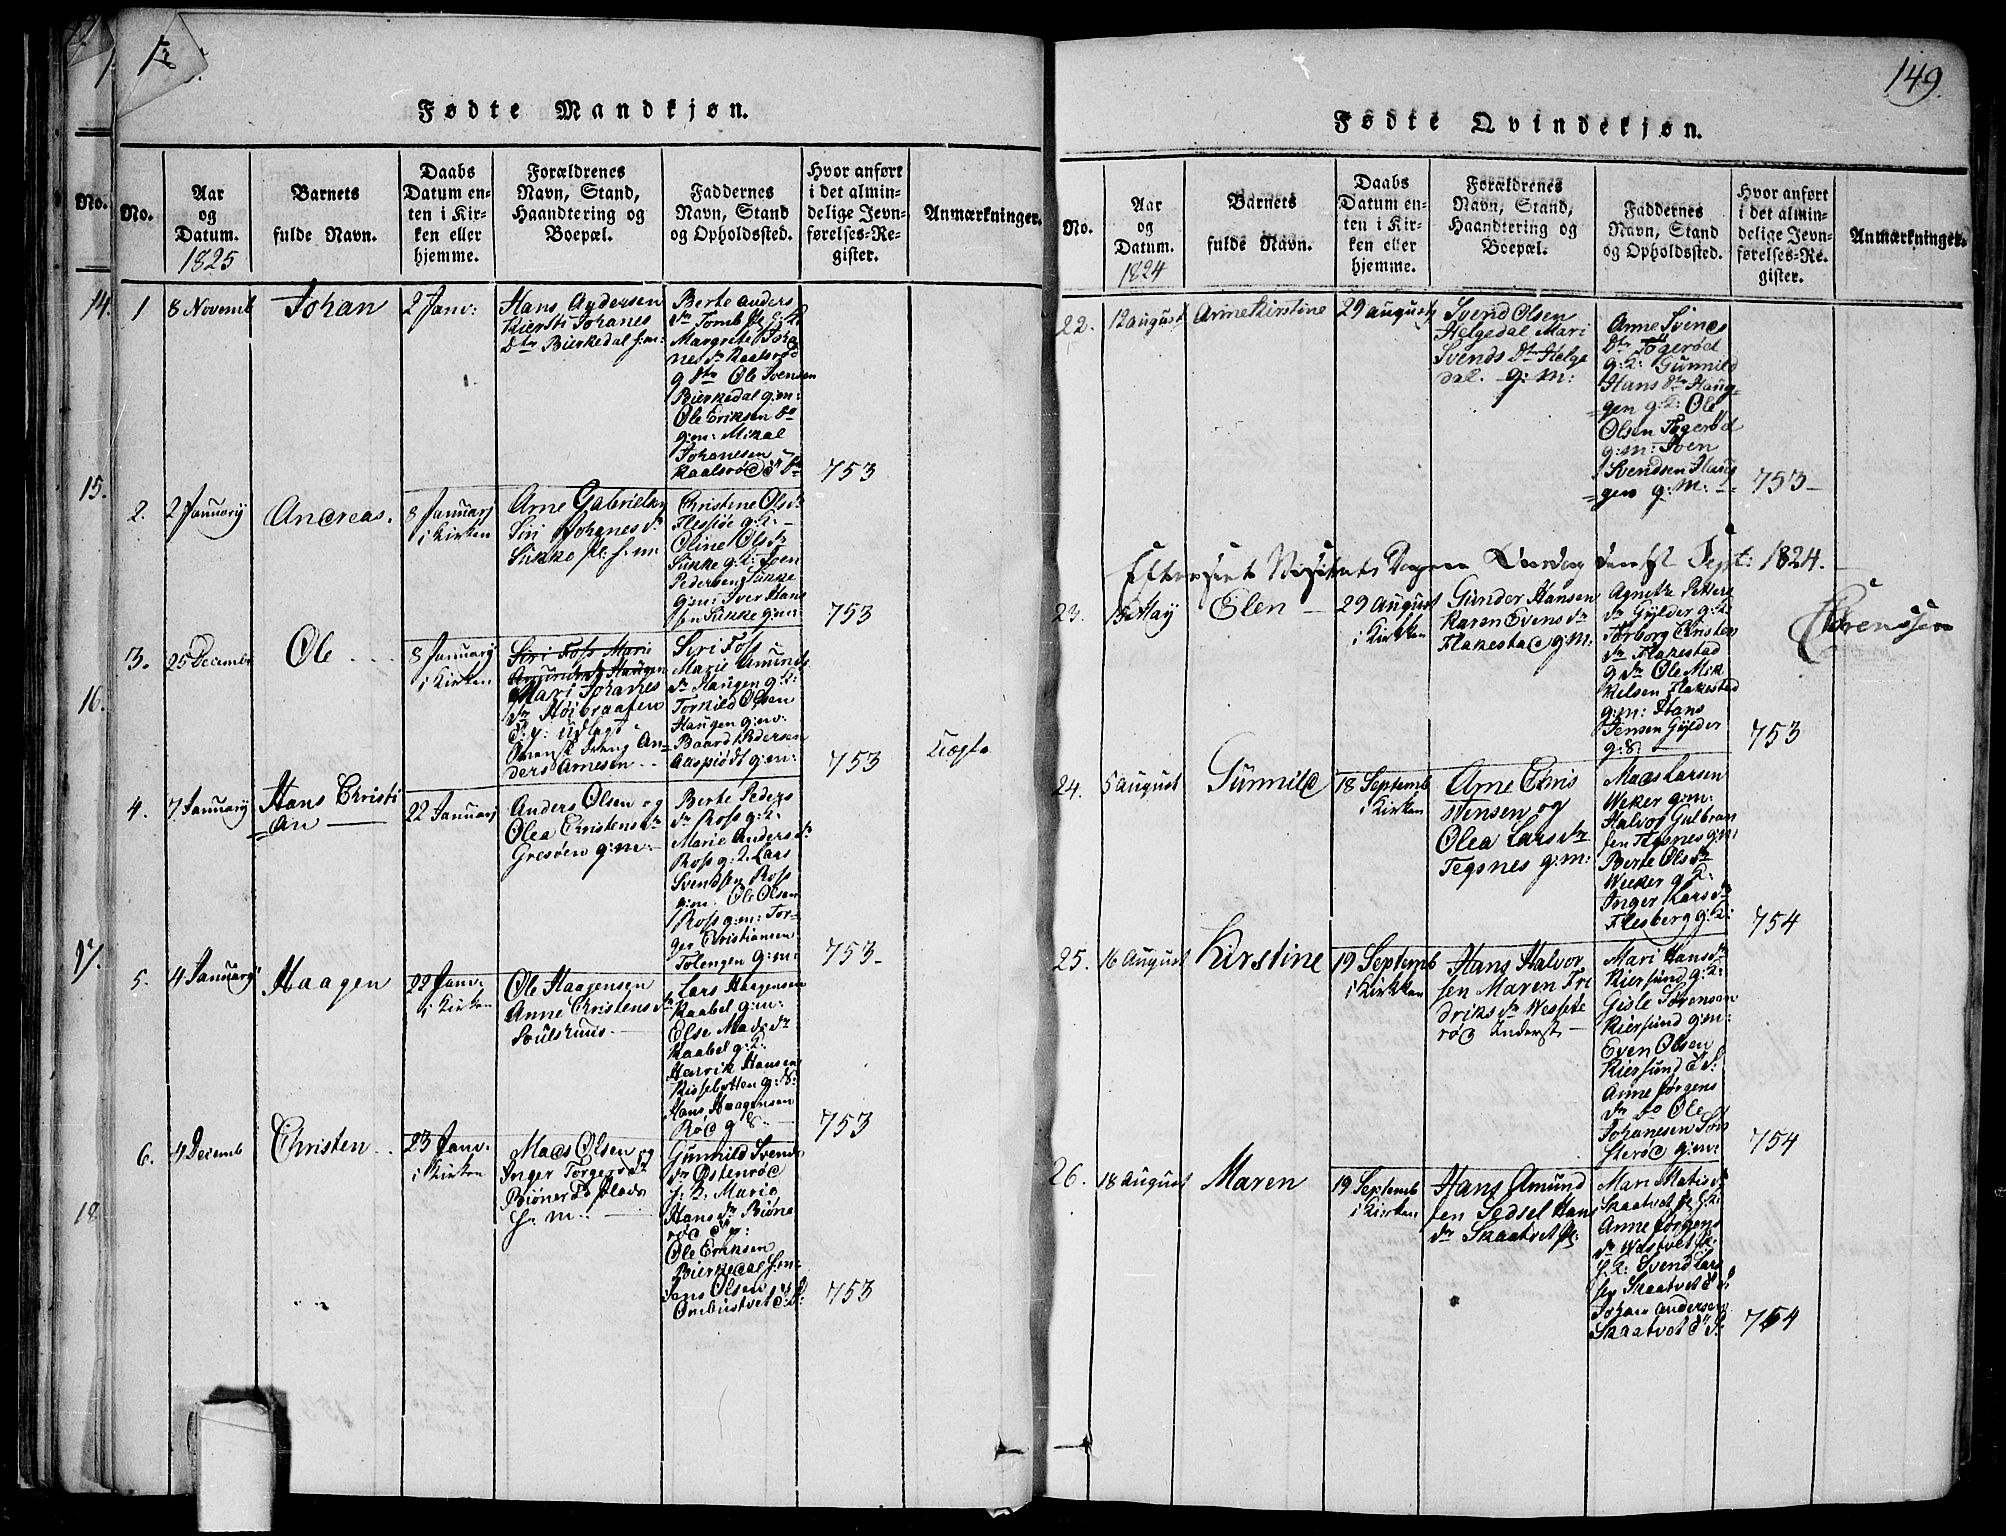 149.
Fødte Mandkjøn.
No.
Aar
og
Datum.
1825
Barnets
fulde Navn.
Daabs
Datum en-
ten i Kir-
ken eller
hjemme.
Forældrenes
Navn, Stand,
Haandtering og
Boepæl.
Faddernes
Navn, Stand
og Opholdssted.
Hvor anført
i det almin-
delige Jevn-
førelses-Re-
gister.
Anmærkninger.
1
8 Novemb
Johan
2 Janv:
Hans Andersen
Kiersti Johanes
Dtr Bierkedal s:m:
Berte Anders
Dr Tomb
Margrete Joha
nes Dr Kaalsrød
g Dtr Ole Svensen
Bierkedal g:m:
Ole Eriksen Do
g:m: Mikal
Johanesen
Kaalsrød
753
2.
2 Januarij
Andreas.
8 Januarij
i Kirken
Arne Gabrielsen
Siri Johanes Dr
Sukke pl: s:m:
Christine Ols Dr
Flessøe g:K: -
Oline Ols Dr
Sukke g:K: Iver
Pedersen Sukke
g:m: Iver Hans
sen Sukke g:m:
753
3.
25 Decembr
Ole
8 Januarij
i Kirken
Siri Foss Marie
Amunds Dr Haugen
Mari Johanes
Dr Høibraaten
E:p: Udlagt
Anders Arnesen
Siri Foss
Marie Amunds
Dr Haugen g:K:
Torkild Olsen
Haugen g:m:
Baard Pedersen
Aaspiødt g:m:
753
Uægte
4.
7 Januarij
Hans Christi
an
22 Januarij
Anders Olsen og
Olea Christens Dr
Gresøen g:m:
Berte Peders
Dr Ross g:K:
Marie Anders Dr
Ross g:K: Lars
Svendsen Ross
g:m: Ole Olsen
Ross g:m: Tor-
ger Christiansen
Tolengen g:m:
753
5.
4 Januarij
Haagen
22 Janv.
i Kirken
Ole Haagensen
Anne Christens Dr
Lars Haagensen
Kaabel g:m:
Else Mads Dr
Kaabel g:K:
Henrik Hansen
Kissebotten g:S:
Hans Haagensen
Rød g:S:
753
6.
4 Decemb
Christen
23 Janv.
i Kirken
Maes Olsen og
Inger Torgers Dr
Biønerød Plads
s: m:
Gunnild Svends
Dr Østenrød
s: K: Marie
Hans Dr Biøne
rød
Ole Eriksen
Bierkedal s:m:
Jens Olsen
Ombustvet
753
Fødte Qvindekjøn.
No.
Aar
og
Datum.
1824
Barnets
fulde Navn.
Daabs
Datum en-
ten i Kir-
ken eller
hjemme.
Forældrenes
Navn, Stand,
Haandtering og
Boepæl.
Faddernes
Navn, Stand
og Opholdssted.
Hvor anført
i det almin-
delige Jevn-
førelses-Re-
gister.
Anmærkninger.
22.
12 August
Anne Kirstine
29 August
Svend Olsen
Helgedal Mari
Svends Dtr Helge
dal. g: M:
Anne Svens
Dtr Togerød
g:K: Gunnild
Hans Dtr Haug-
gen g:K: Ole
Olsen Togerød
g:m: Sven
Svendsen Haug
gen g:M:
753
Efterseet Visitats Dagen Lørdag den Sept: 1824.
Sørenssen
23.
15 May
Elen
29 August
i Kirkken
Gunder Hansen
Karen Evens Dr
Flakestad g:M:
Agnethe Petters
Dr Gylder g:K:
Torborg Christen
Dr Flakestad
g Dr Ole Mik
kelsen Flakestad
g:m: Hans
Jensen Gylder
g:S:
753
24.
5 August
Gunnild
18 Septemb
i Kirkken
Arne Chris
tensen og
Olea Lars Dr
Tegsnes g:M:
Maes Larsen
Weker g:m:
Halvor Gulbran
sen Tegsnes g:m:
Berte Ols Dr
Weker g:K:
Inger Lars Dr
Flesberg g:K:
754
25.
16 August
Kirstine
19 Septemb
i Kirkken
Hans Halvor
sen Maren Fri
driks Dr Wesete
rød Inderst
Mari Hans Dr
Kiersund g:K:
Gisle Sørensen
Kiersund g:m:
Even Olsen
Kiersund
Anne Jørgens
Dr Do Ole
Johanesen Søn
sterød g:m:
754
26.
18 August
Maren
19 Septemb
i Kirken
Hans Amund
sen Sedsel Hans
Dr Skaatvet
Mari Matis Dr
Skaatvet
Anne Jørgens
Dr Westvet
s:K: Svend Lars
sen Skaatvet
Johan Andersen
Skaatvet
754
14.
15.
16.
17.
18